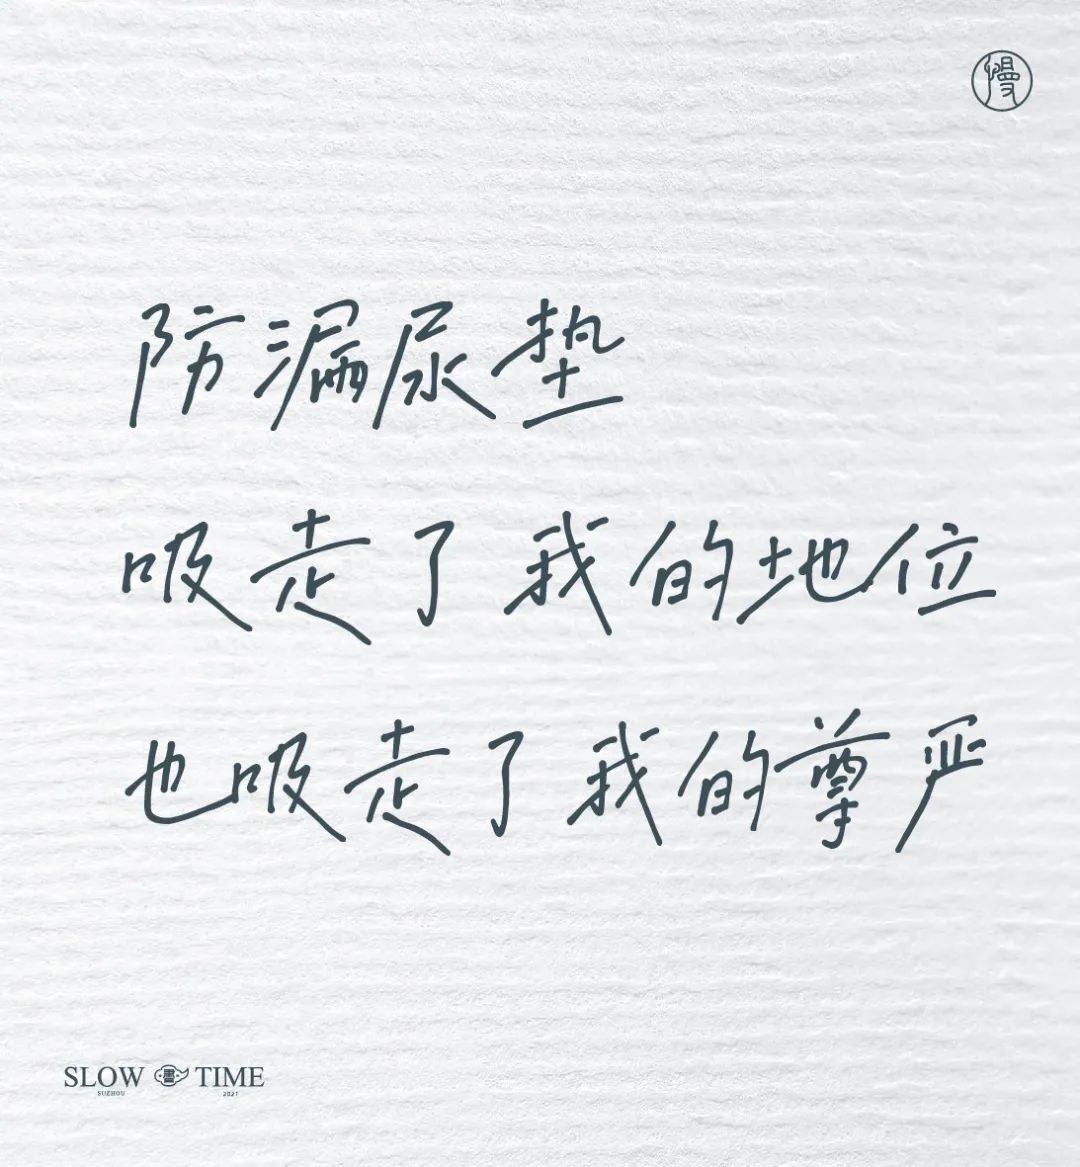 慢
防漏尿垫
吸走了我的地位
也吸走了我的尊严
SLOW 書 TIME
SUZHOU 2021